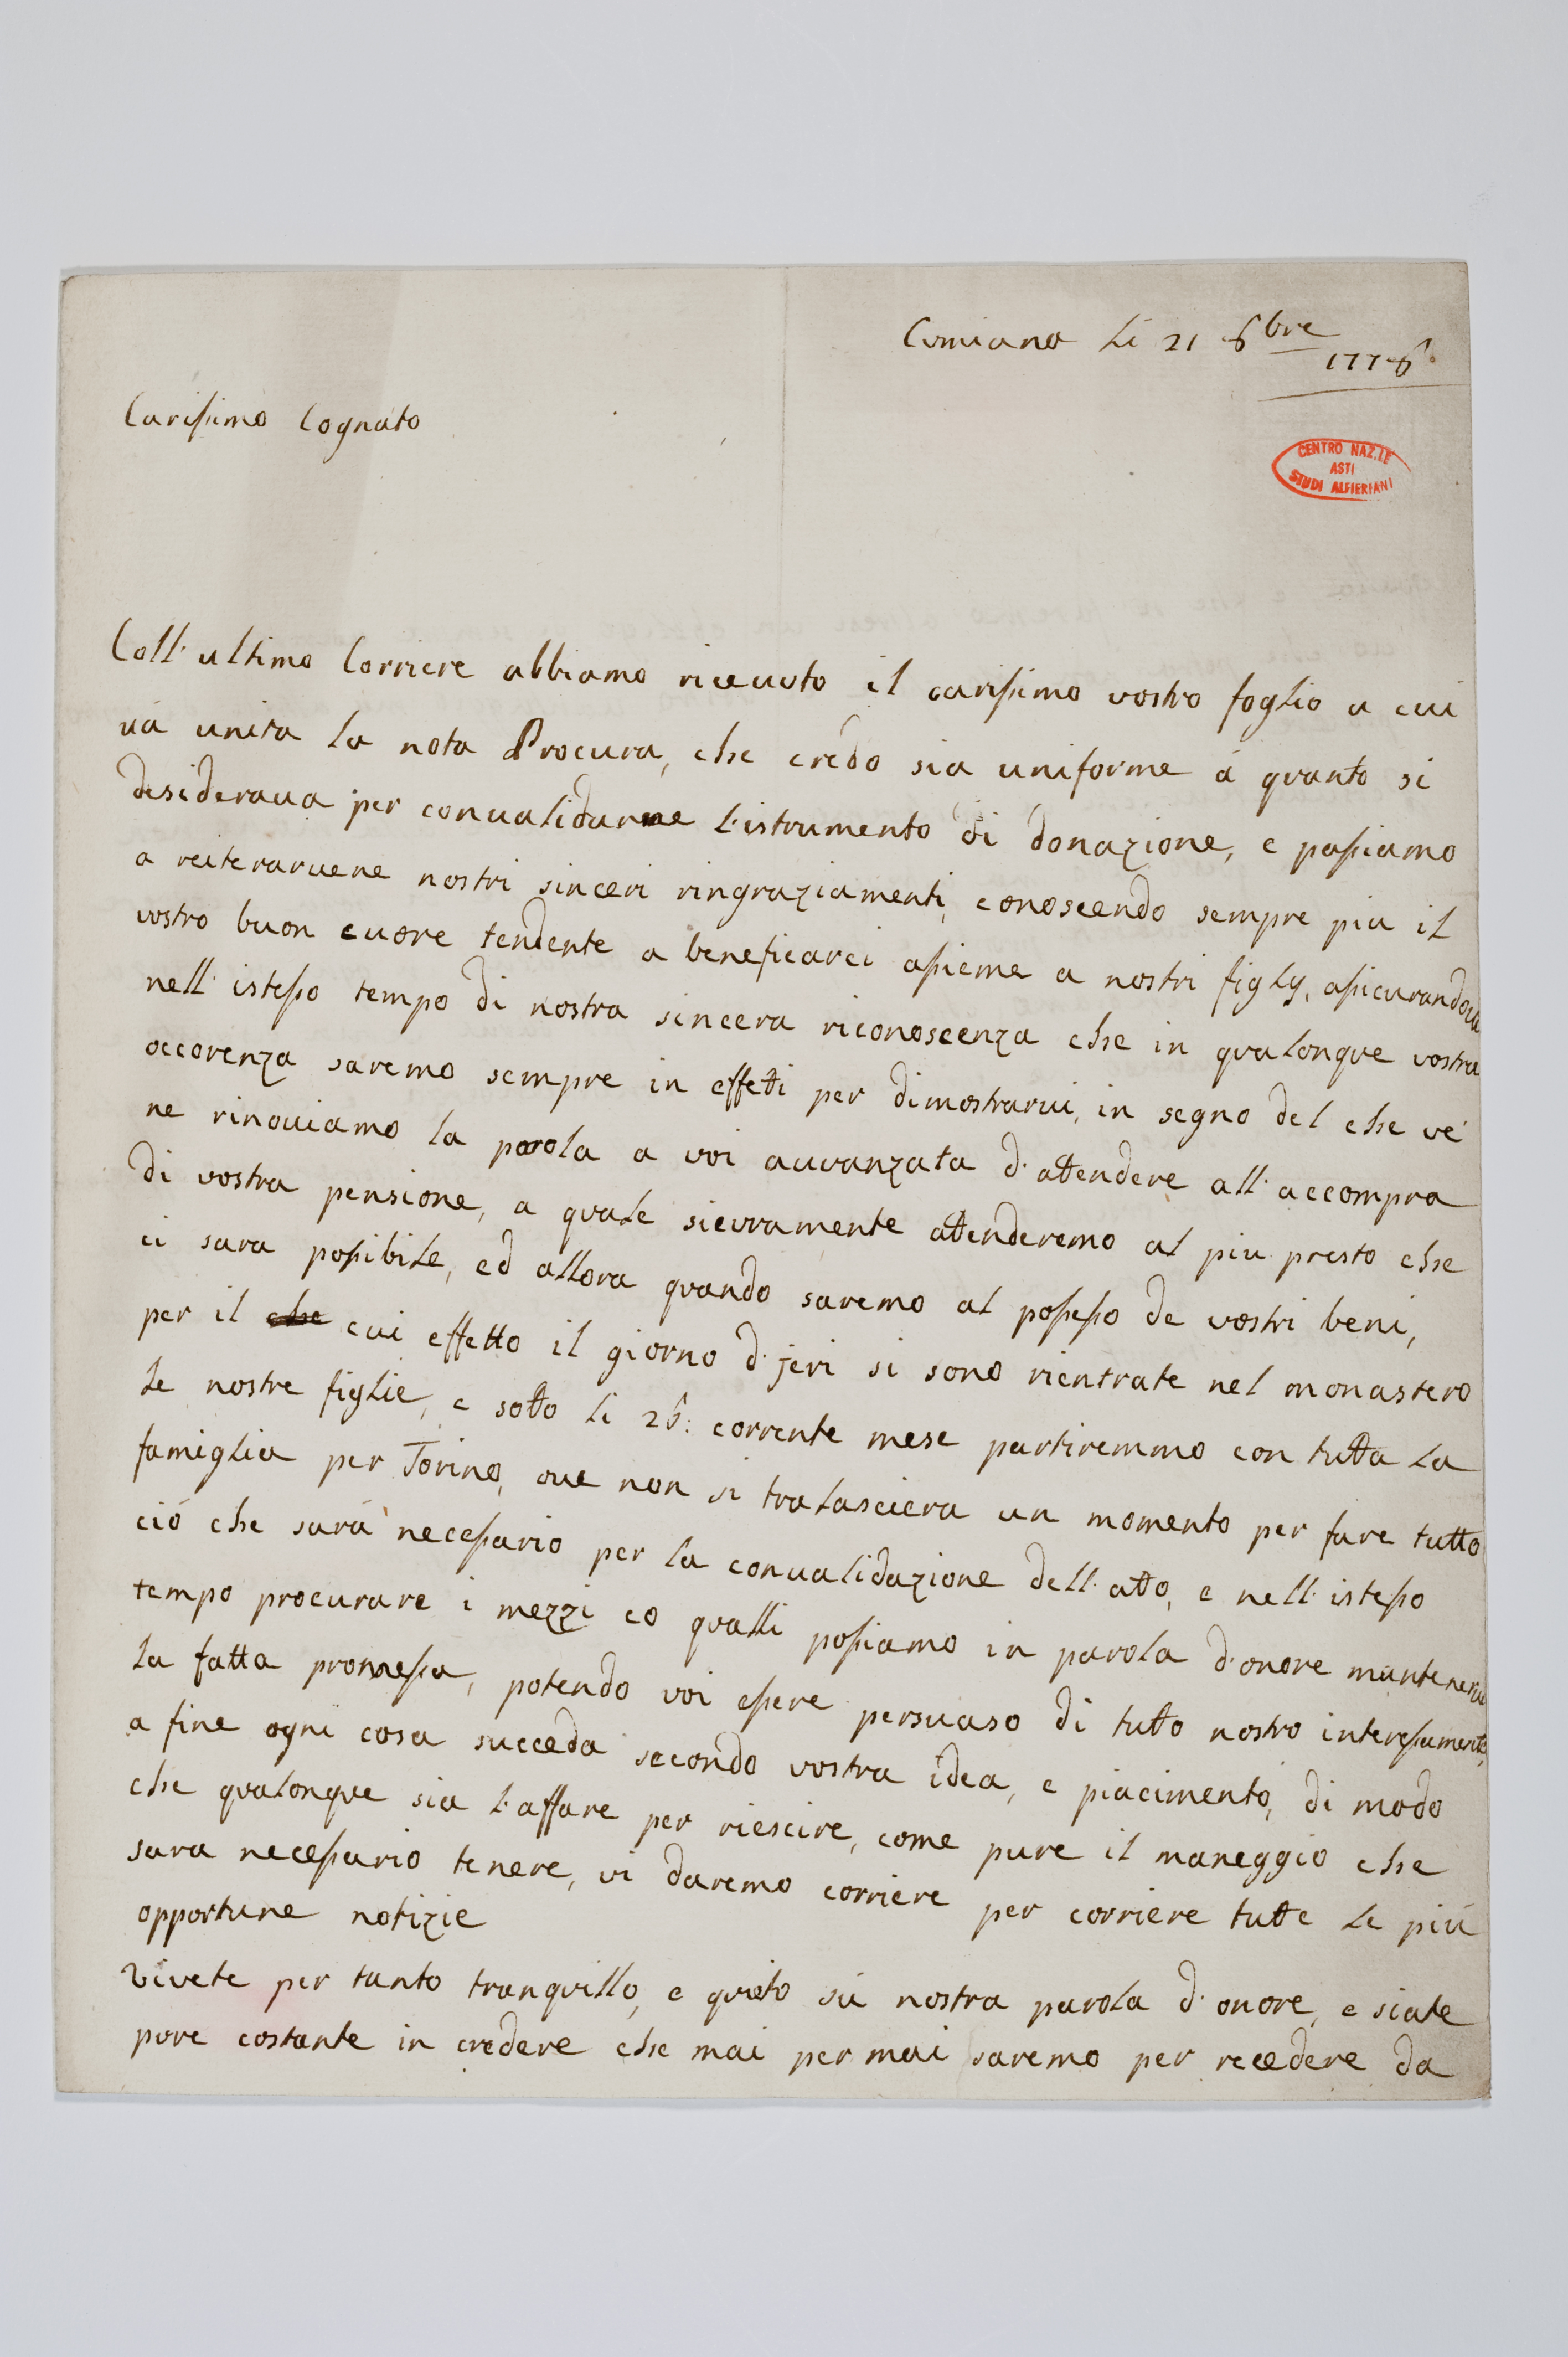 Cumiana li 21 8bre
1778.
Carissimo Cognato
CENTRO NAZ.LE
ASTI
STUDI ALFIERIANI
Coll'ultimo Corriere abbiamo riceuuto il carissimo vostro foglio a cui
uà unita la nota Procura, che credo sia uniforme à quanto si
desideraua per conualidarne l'istrumento di donazione, e passiamo
a reiteraruene nostri sinceri ringraziamenti, conoscendo sempre piu il
vostro buon cuore tendente a beneficarci assieme a nostri figly, assicurandoui
nell'istesso tempo di nostra sincera riconoscenza che in qualonque vostra
occorenza saremo sempre in effetti per dimostrarui, in segno del che ve
ne rinouiamo la parola a voi auuanzata d'attendere all'accompra
di vostra pensione, a quale sicuramente attenderemo al piu presto che
ci sara possibile, ed allora quando saremo al possesso de vostri beni,
per il che cui effetto il giorno d'jeri si sono rientrate nel monastero
le nostre figlie, e sotto li 26: corrente mese partiremmo con tutta la
famiglia per Torino, oue non si tralasciera un momento per fare tutto
ciò che sarà necessario per la conualidazione dell'atto, e nell'istesso
tempo procurare i mezzi co qualli possiamo in parola d'onore mantenerui
la fatta promessa, potendo voi essere persuaso di tutto nostro interessamento,
a fine ogni cosa succeda secondo vostra idea, e piacimento, di modo
che qualonque sia l'affare per riescire, come pure il maneggio che
sara necessario tenere, vi daremo corriere per corriere tutte le più
opportune notizie
Vivete per tanto tranquillo, e quieto sù nostra parola d'onore, e siate
pure costante in credere che mai per mai saremo per recedere da